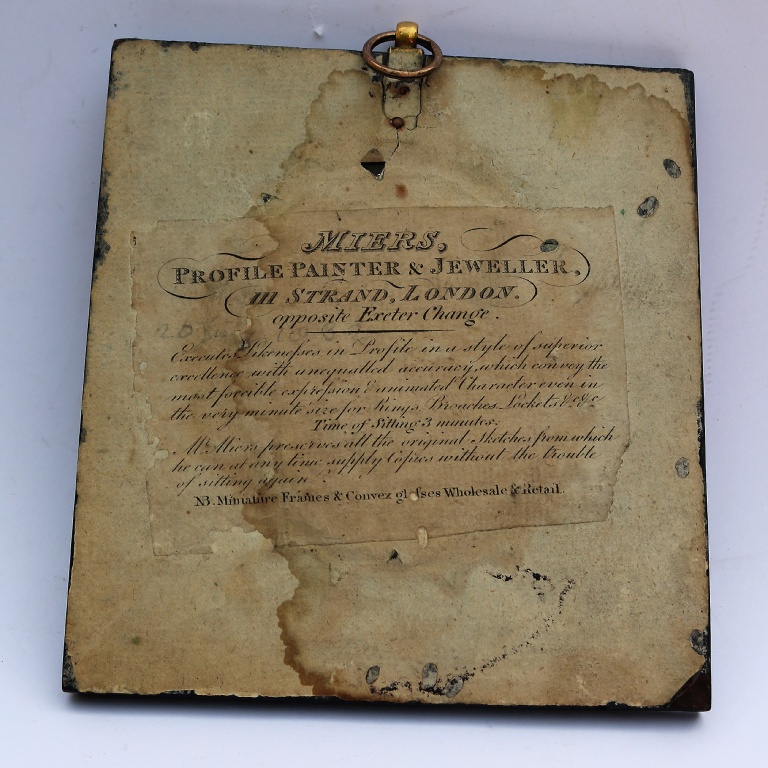 MIERS,
PROFILE PAINTER & JEWELLER,
111 STRAND, LONDON.
opposite Exeter Change.
Executes Likenesses in Profile in a style of superior
excellence with unequalled accuracy, which convey the
most forcible expression & animated Character even in
the very minute size for Rings, Broaches, Lockets &c &c
Time of Sitting 3 minutes.
Mr Miers preserves all the original Sketches from which
he can at any time supply Copies without the trouble
of sitting again
NB. Miniature Frames & Convex glasses Wholesale & Retail.